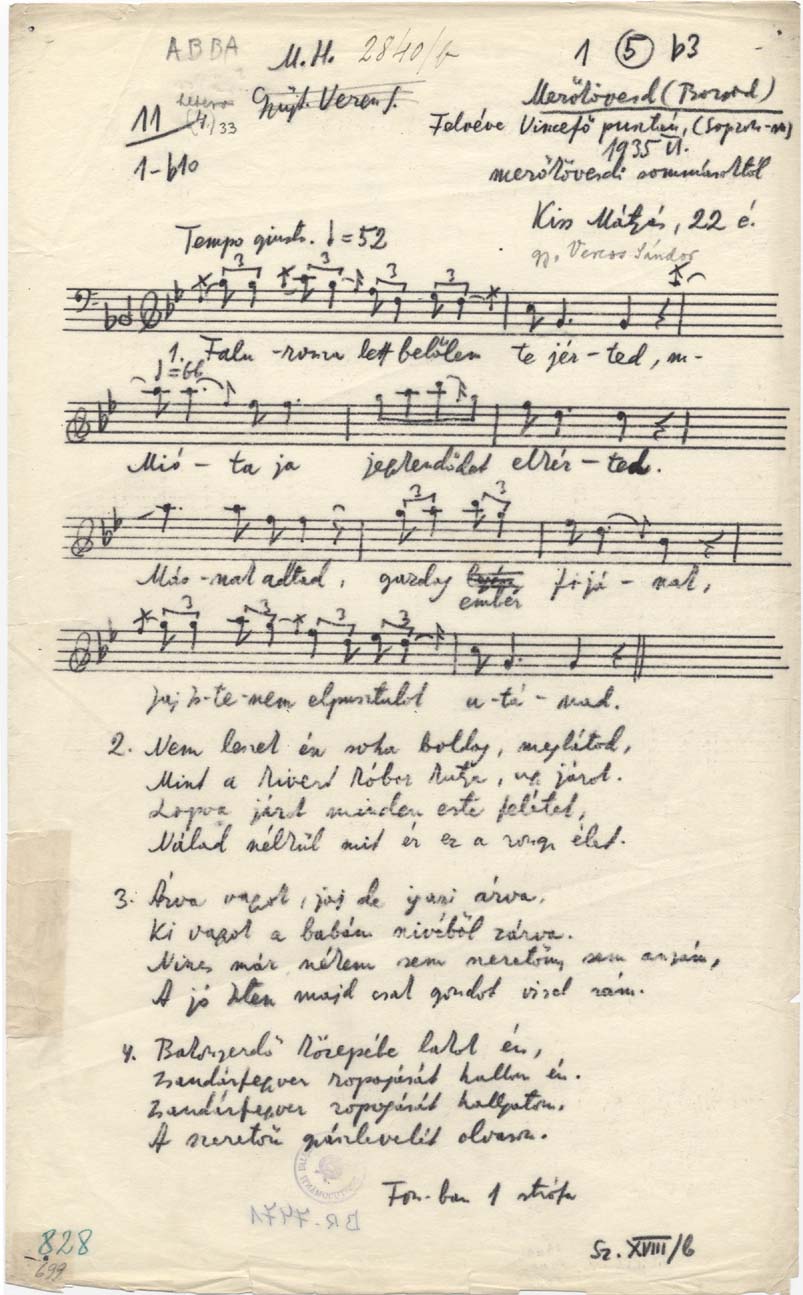 ABBA
M.H. 2840/b
1 (5) b3
Gyűjt. Veress S.
Mezőkövesd (Borsod)
11 (4) 33
Felvéve Vincefő pusztán, (Sopron-m)
1935 VI.
1-b10
mezőkövesdi sommásoktól
Kiss Mátyás, 22 é.
gy. Veress Sándor
Tempo giusto. ♩=52
3 3 3 3
1. Falu-rossza lett belőlem te jér-ted, m-
♩=66
Mió-ta ja jegkendődet elkér-ted.
3 3
Más-nak adtad, gazdag
ember fijá-nak,
3 3 3 3
Jaj Is-te-nem elpusztulok u-tá-nad.
2. Nem leszek én soha boldog, meglátod,
Mint a kivert kóbor kutya, ug járok.
Lopva járok minden este feléted,
Nálad nélkül mit ér ez a rongy élet.
3. Árva vagyok, jaj de igazi árva,
Ki vagyok a babám szivéből zárva.
Nincs már nékem sem szeretőm, sem anyám,
A jó Isten majd csak gondot visel rám.
4. Bakonyerdő közepébe lakok én,
Zsandárfegyver ropogását hallom én.
Zsandárfegyver ropogását hallgatom,
A szeretőm gyászlevelét olvasom.
Fon-ban 1 strófa
BR-7471
828
699
Sz. XVIII/b